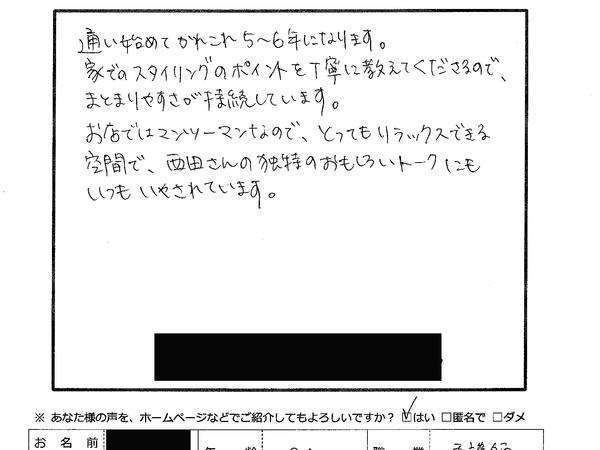 通い始めてかれこれ5～6年になります。
家でのスタイリングのポイントを丁寧に教えてくださるので、
まとまりやすさが持続しています。
お店ではマンツーマンなので、とってもリラックスできる
空間で、西田さんの独特のおもしろいトークにも
いつもいやされています。
※ あなた様の声を、ホームページなどでご紹介してもよろしいですか？ ☑はい □匿名で □ダメ
お 名 前 年 齢 職 業